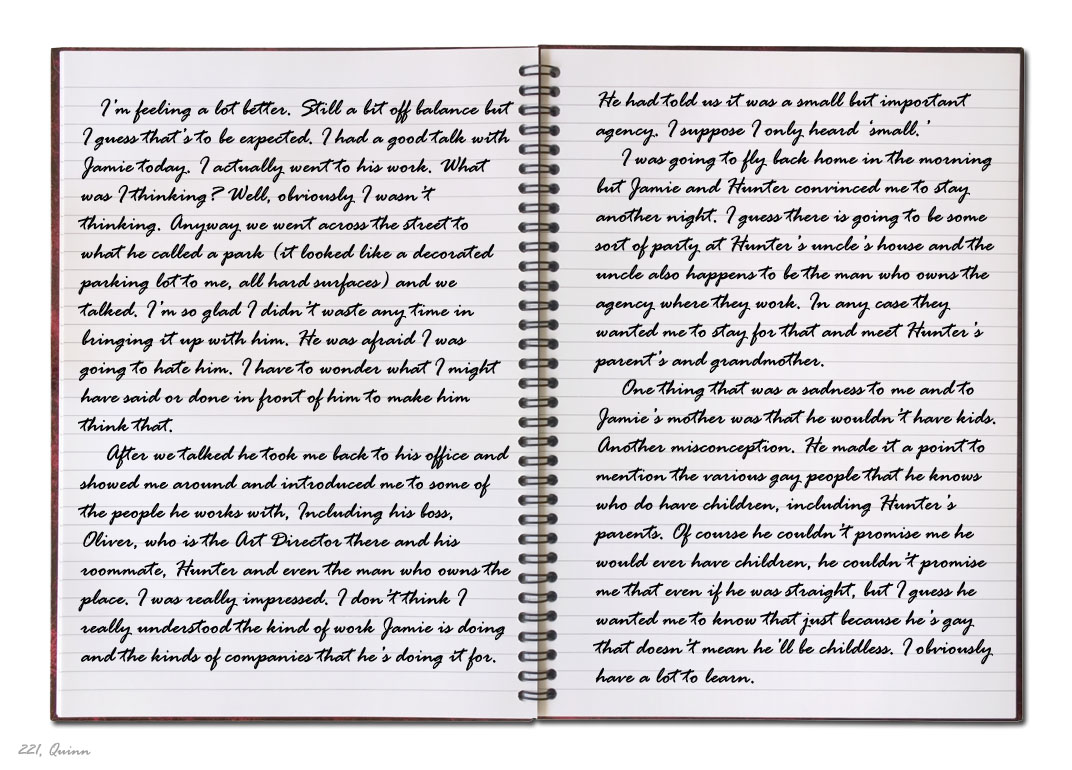 I'm feeling a lot better. Still a bit off balance but
I guess that's to be expected. I had a good talk with
Jamie today. I actually went to his work. What
was I thinking? Well, obviously I wasn't
thinking. Anyway we went across the street to
what he called a park (it looked like a decorated
parking lot to me, all hard surfaces) and we
talked. I'm so glad I didn't waste any time in
bringing it up with him. He was afraid I was
going to hate him. I have to wonder what I might
have said or done in front of him to make him
think that.
After we talked he took me back to his office and
showed me around and introduced me to some of
the people he works with, Including his boss,
Oliver, who is the Art Director there and his
roommate, Hunter and even the man who owns the
place. I was really impressed. I don't think I
really understood the kind of work Jamie is doing
and the kinds of companies that he's doing it for.
He had told us it was a small but important
agency. I suppose I only heard 'small.'
I was going to fly back home in the morning
but Jamie and Hunter convinced me to stay
another night. I guess there is going to be some
sort of party at Hunter's uncle's house and the
uncle also happens to be the man who owns the
agency where they work. In any case they
wanted me to stay for that and meet Hunter's
parent's and grandmother.
One thing that was a sadness to me and to
Jamie's mother was that he wouldn't have kids.
Another misconception. He made it a point to
mention the various gay people that he knows
who do have children, including Hunter's
parents. Of course he couldn't promise me he
would ever have children, he couldn't promise
me that even if he was straight, but I guess he
wanted me to know that just because he's gay
that doesn't mean he'll be childless. I obviously
have a lot to learn.
221, Quinn